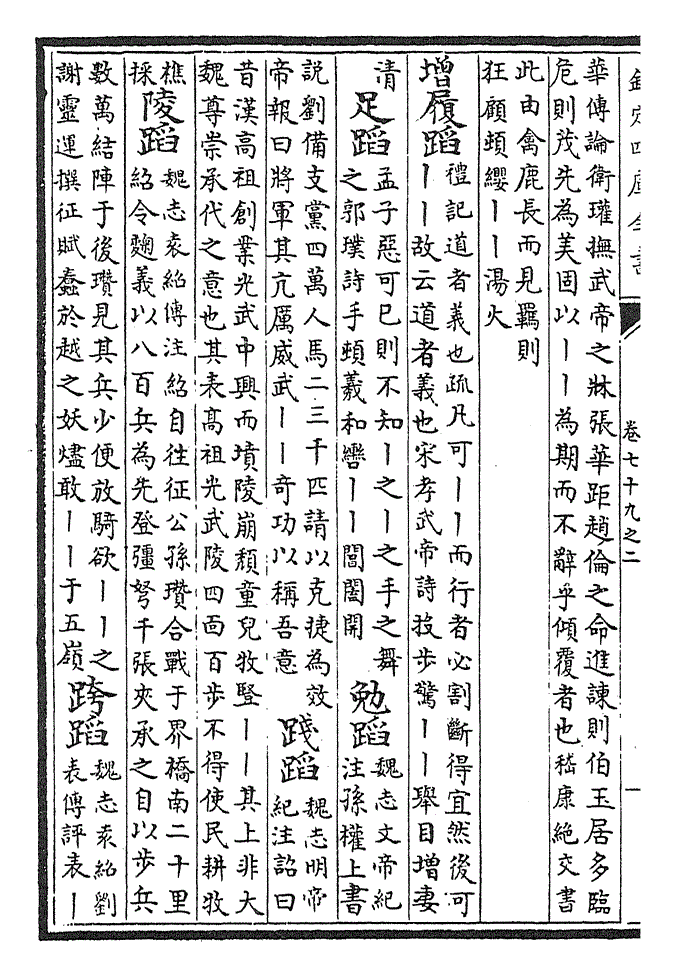 欽定四庫全書
卷七十九之二
一
華傳論衛瓘撫武帝之牀張華距趙倫之命進諫則伯玉居多臨
危則茂先為美固以丨丨為期而不辭乎傾覆者也嵇康絶交書
此由禽鹿長而見羈則
狂顧頓纓丨丨湯火
增履蹈
禮記道者義也疏凡可丨丨而行者必割斷得宜然後可
丨丨故云道者義也宋孝武帝詩技步驚丨丨舉目增妻
清
足蹈
孟子惡可已則不知丨之丨之手之舞
之郭璞詩手頓羲和轡丨丨閶闔開
勉蹈
魏志文帝紀
注孫權上書
說劉備支黨四萬人馬二三千匹請以克捷為效
帝報曰將軍其亢厲威武丨丨奇功以稱吾意
踐蹈
魏志明帝
紀注詔曰
昔漢高祖創業光武中興而墳陵崩頹童兒牧豎丨丨其上非大
魏尊崇承代之意也其表高祖光武陵四面百步不得使民耕牧
樵
採
陵蹈
魏志袁紹傳注紹自往征公孫瓚合戰于界橋南二十里
紹令麴義以八百兵為先登彊弩千張夾承之自以步兵
數萬結陣于後瓚見其兵少便放騎欲丨丨之
謝靈運撰征賦蠢於越之妖燼敢丨丨于五嶺
跨蹈
魏志袁紹劉
表傳評表丨